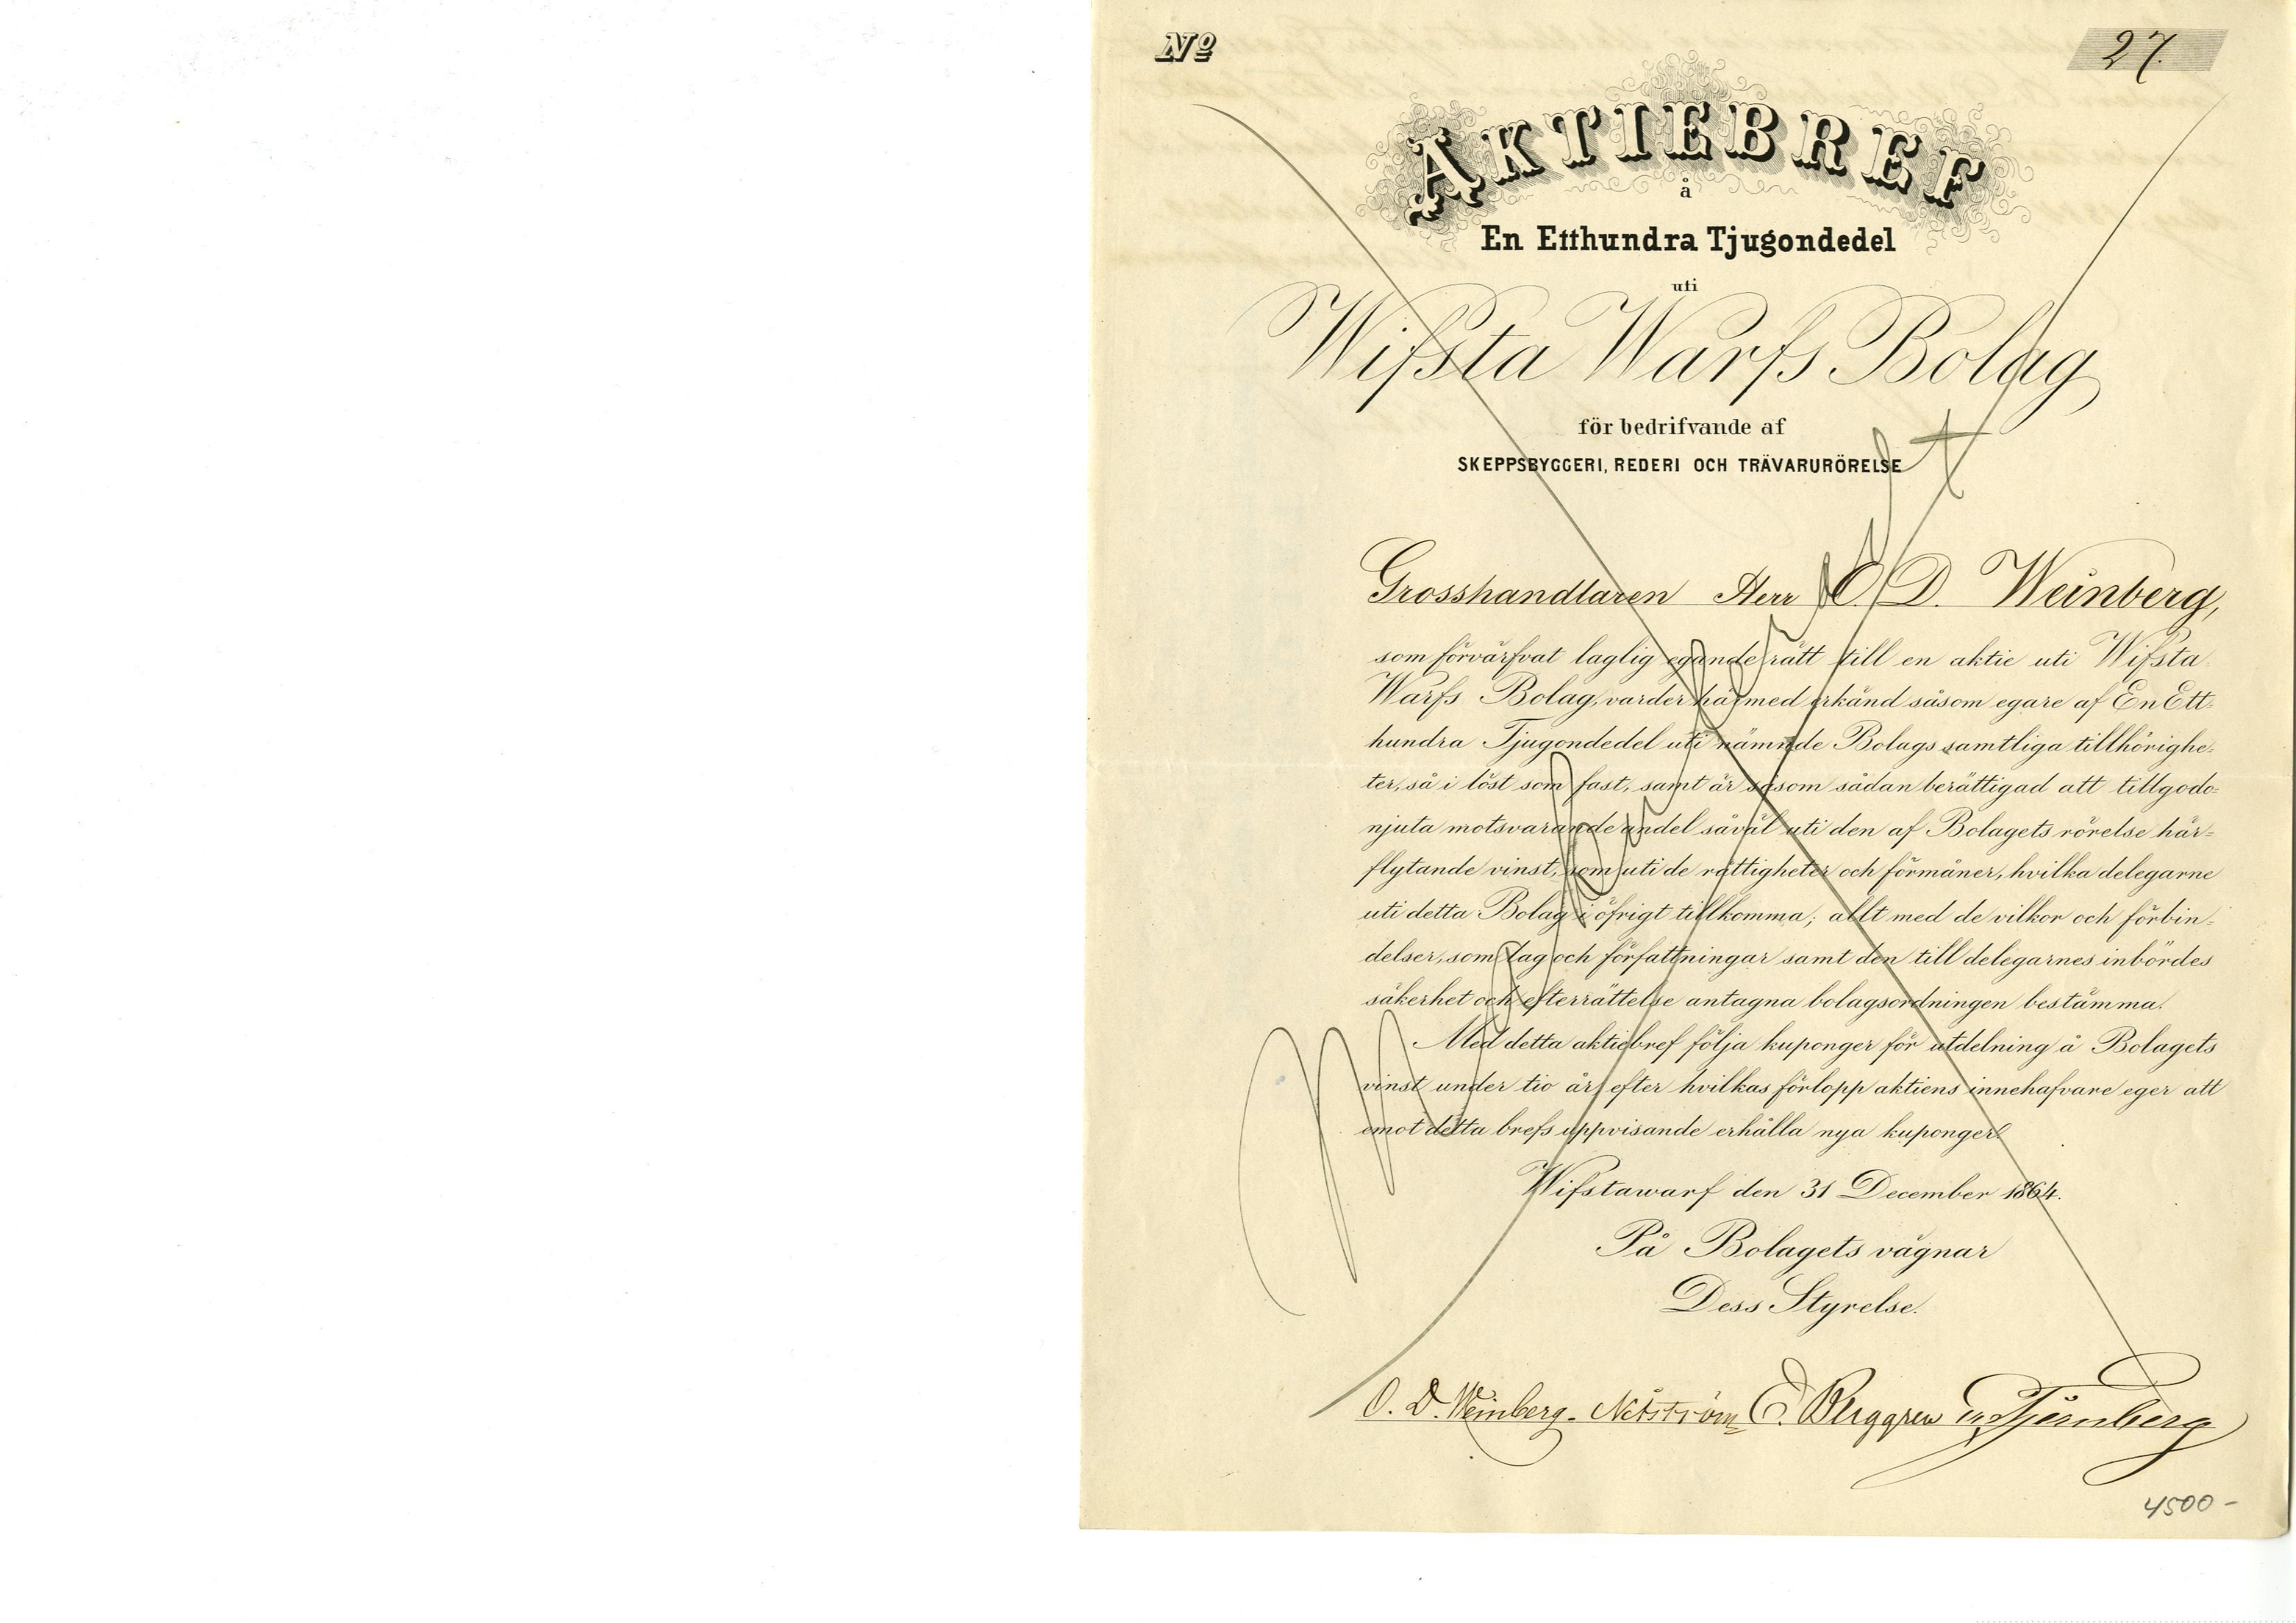 Nº 27.
AKTIEBREF
å
En Etthundra Tjugondedel
uti
Wifsta Warfs Bolag
för bedrifvande af
SKEPPSBYGGERI, REDERI OCH TRÄVARURÖRELSE
Grosshandlaren Herr O. D. Weinberg,
som förvärfvat laglig eganderätt till en aktie uti Wifsta
Warfs Bolag, varder härmed erkänd såsom egare af En Ett-
hundra Tjugondedel uti nämnde Bolags samtliga tillhörighe-
ter, så i löst som fast, samt är såsom sådan berättigad att tillgodo-
njuta motsvarande andel såväl uti den af Bolagets rörelse här-
flytande vinst, som uti de rättigheter och förmåner, hvilka delegarne
uti detta Bolag i öfrigt tillkomma; allt med de vilkor och förbin-
delser, som lag och författningar samt den till delegarnes inbördes
säkerhet och efterrättelse antagna bolagsordningen bestämma.
Med detta aktiebref följa kuponger för utdelning å Bolagets
vinst under tio år, efter hvilkas förlopp aktiens innehafvare eger att
emot detta brefs uppvisande erhålla nya kuponger.
Wifstawarf den 31 December 1864.
På Bolagets vägnar
Dess Styrelse.
O. D. Weinberg. E. Berggren Tjernberg
4500-